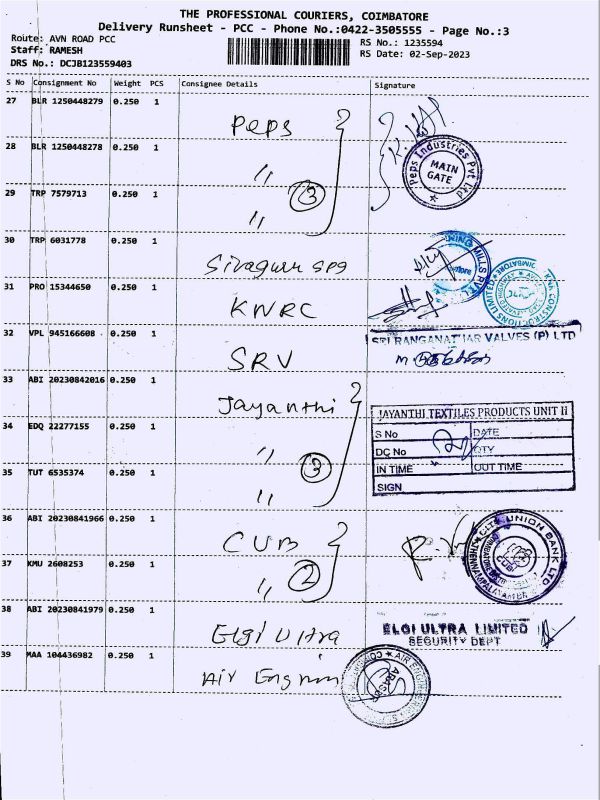 THE PROFESSIONAL COURIERS, COIMBATORE
Delivery Runsheet - PCC - Phone No.:0422-3505555 - Page No.:3
Route: AVN ROAD PCC
Staff: RAMESH
DRS No.: DCJB123559403
RS No.: 1235594
RS Date: 02-Sep-2023
S No Consignment No Weight PCS Consignee Details Signature
27 BLR 1250448279 0.250 1 Peps
28 BLR 1250448278 0.250 1 "
Peps Industries Pvt Ltd
MAIN
GATE
29 TRP 7579713 0.250 1 " 3
30 TRP 6031778 0.250 1 Sivaguru spg
MILLS
31 PRO 15344650 0.250 1 KNRC
KNR CONSTRUCTIONS LIMITED
32 VPL 945166608 0.250 1 SRV
SRI RANGANATHAR VALVES (P) LTD
33 ABI 20230842016 0.250 1 Jayanthi
JAYANTHI TEXTILES PRODUCTS UNIT II
S No DATE
DC No QTY
IN TIME OUT TIME
SIGN
34 EDQ 22277155 0.250 1 "
35 TUT 6535374 0.250 1 " 3
36 ABI 20230841966 0.250 1 CUB
CITY UNION BANK LTD
37 KMU 2608253 0.250 1 " 2
38 ABI 20230841979 0.250 1 Elgi Ultra
ELGI ULTRA LIMITED
SECURITY DEPT
39 MAA 104436982 0.250 1 Air Engrin